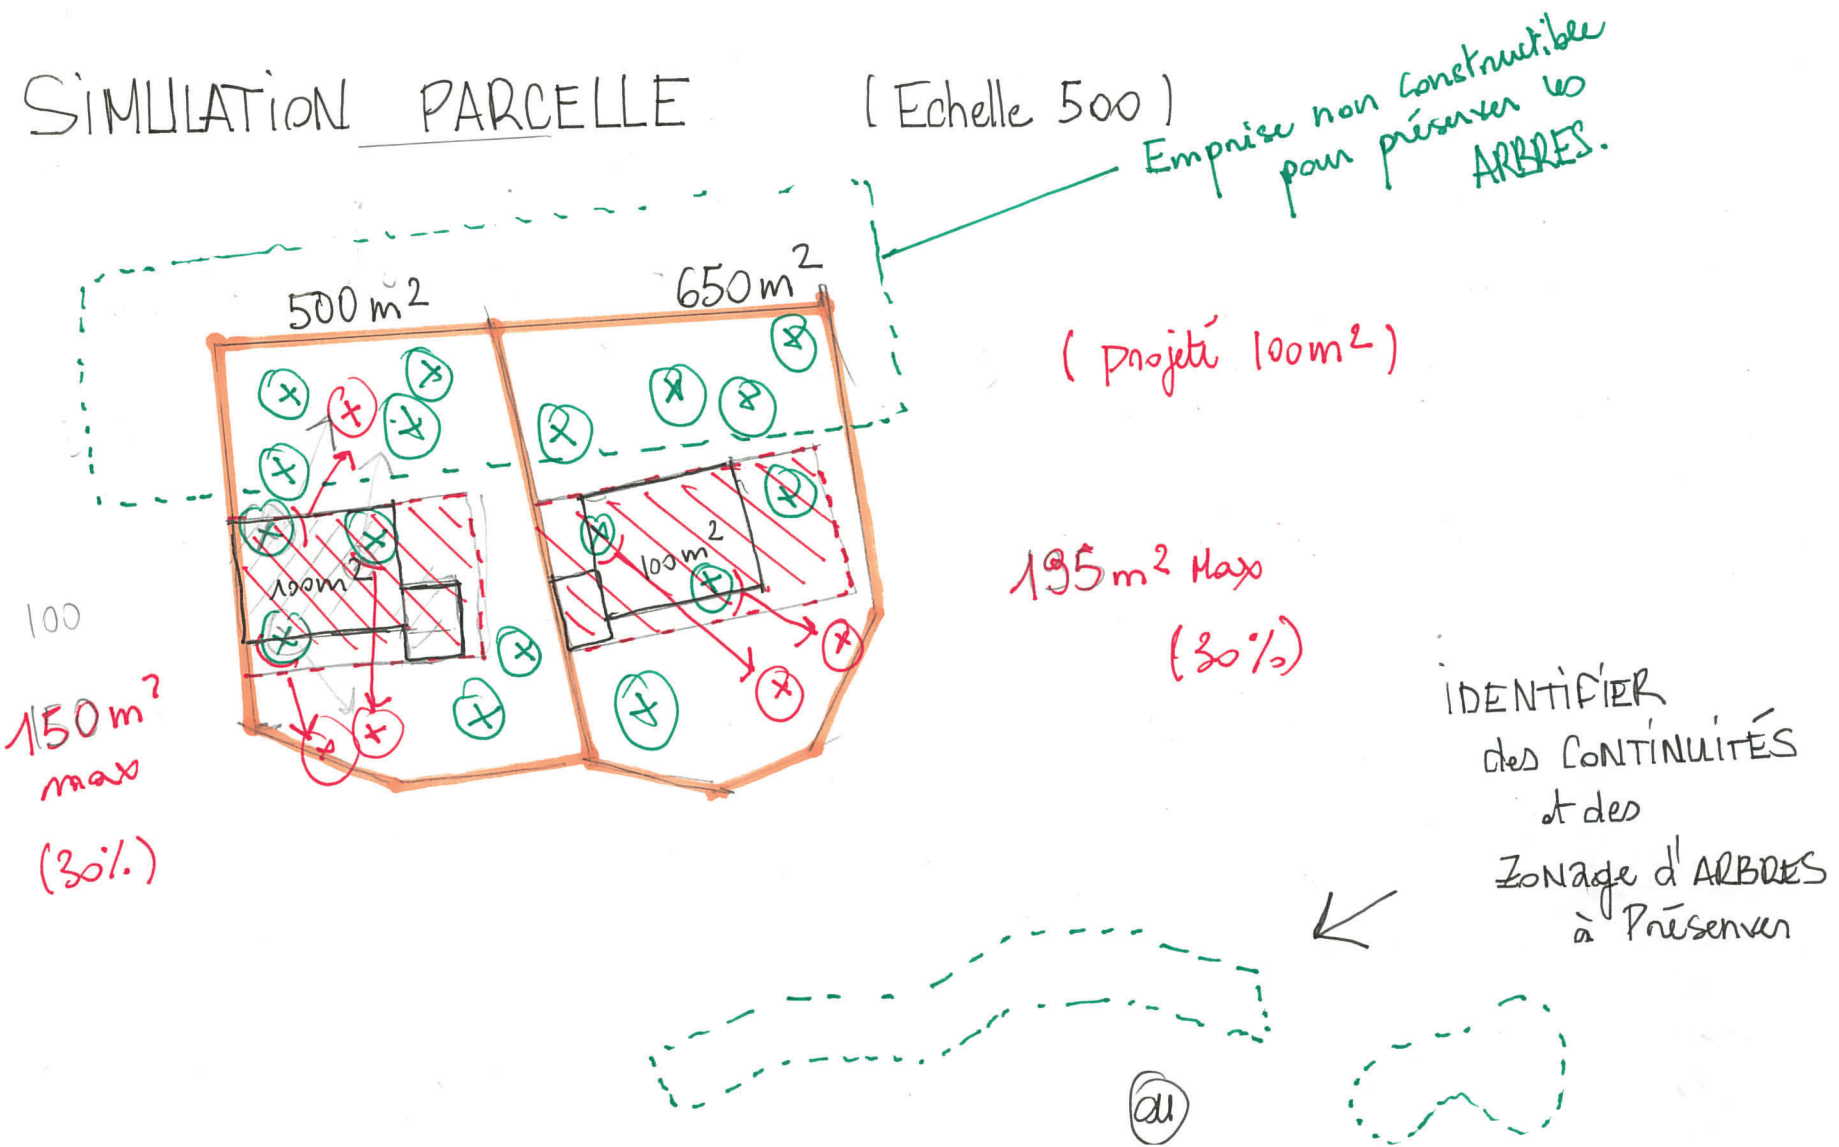 SIMULATION PARCELLE (Echelle 500)
Emprise non constructible
pour préserver les
ARBRES.
500 m²
650 m²
(projeté 100m²)
100m²
100m²
195m² Max
(30%)
100
150m²
max
(30%)
iDENTiFiER
des CONTiNUiTÉS
et des
ZONage d'ARBRES
à Préserver
ou